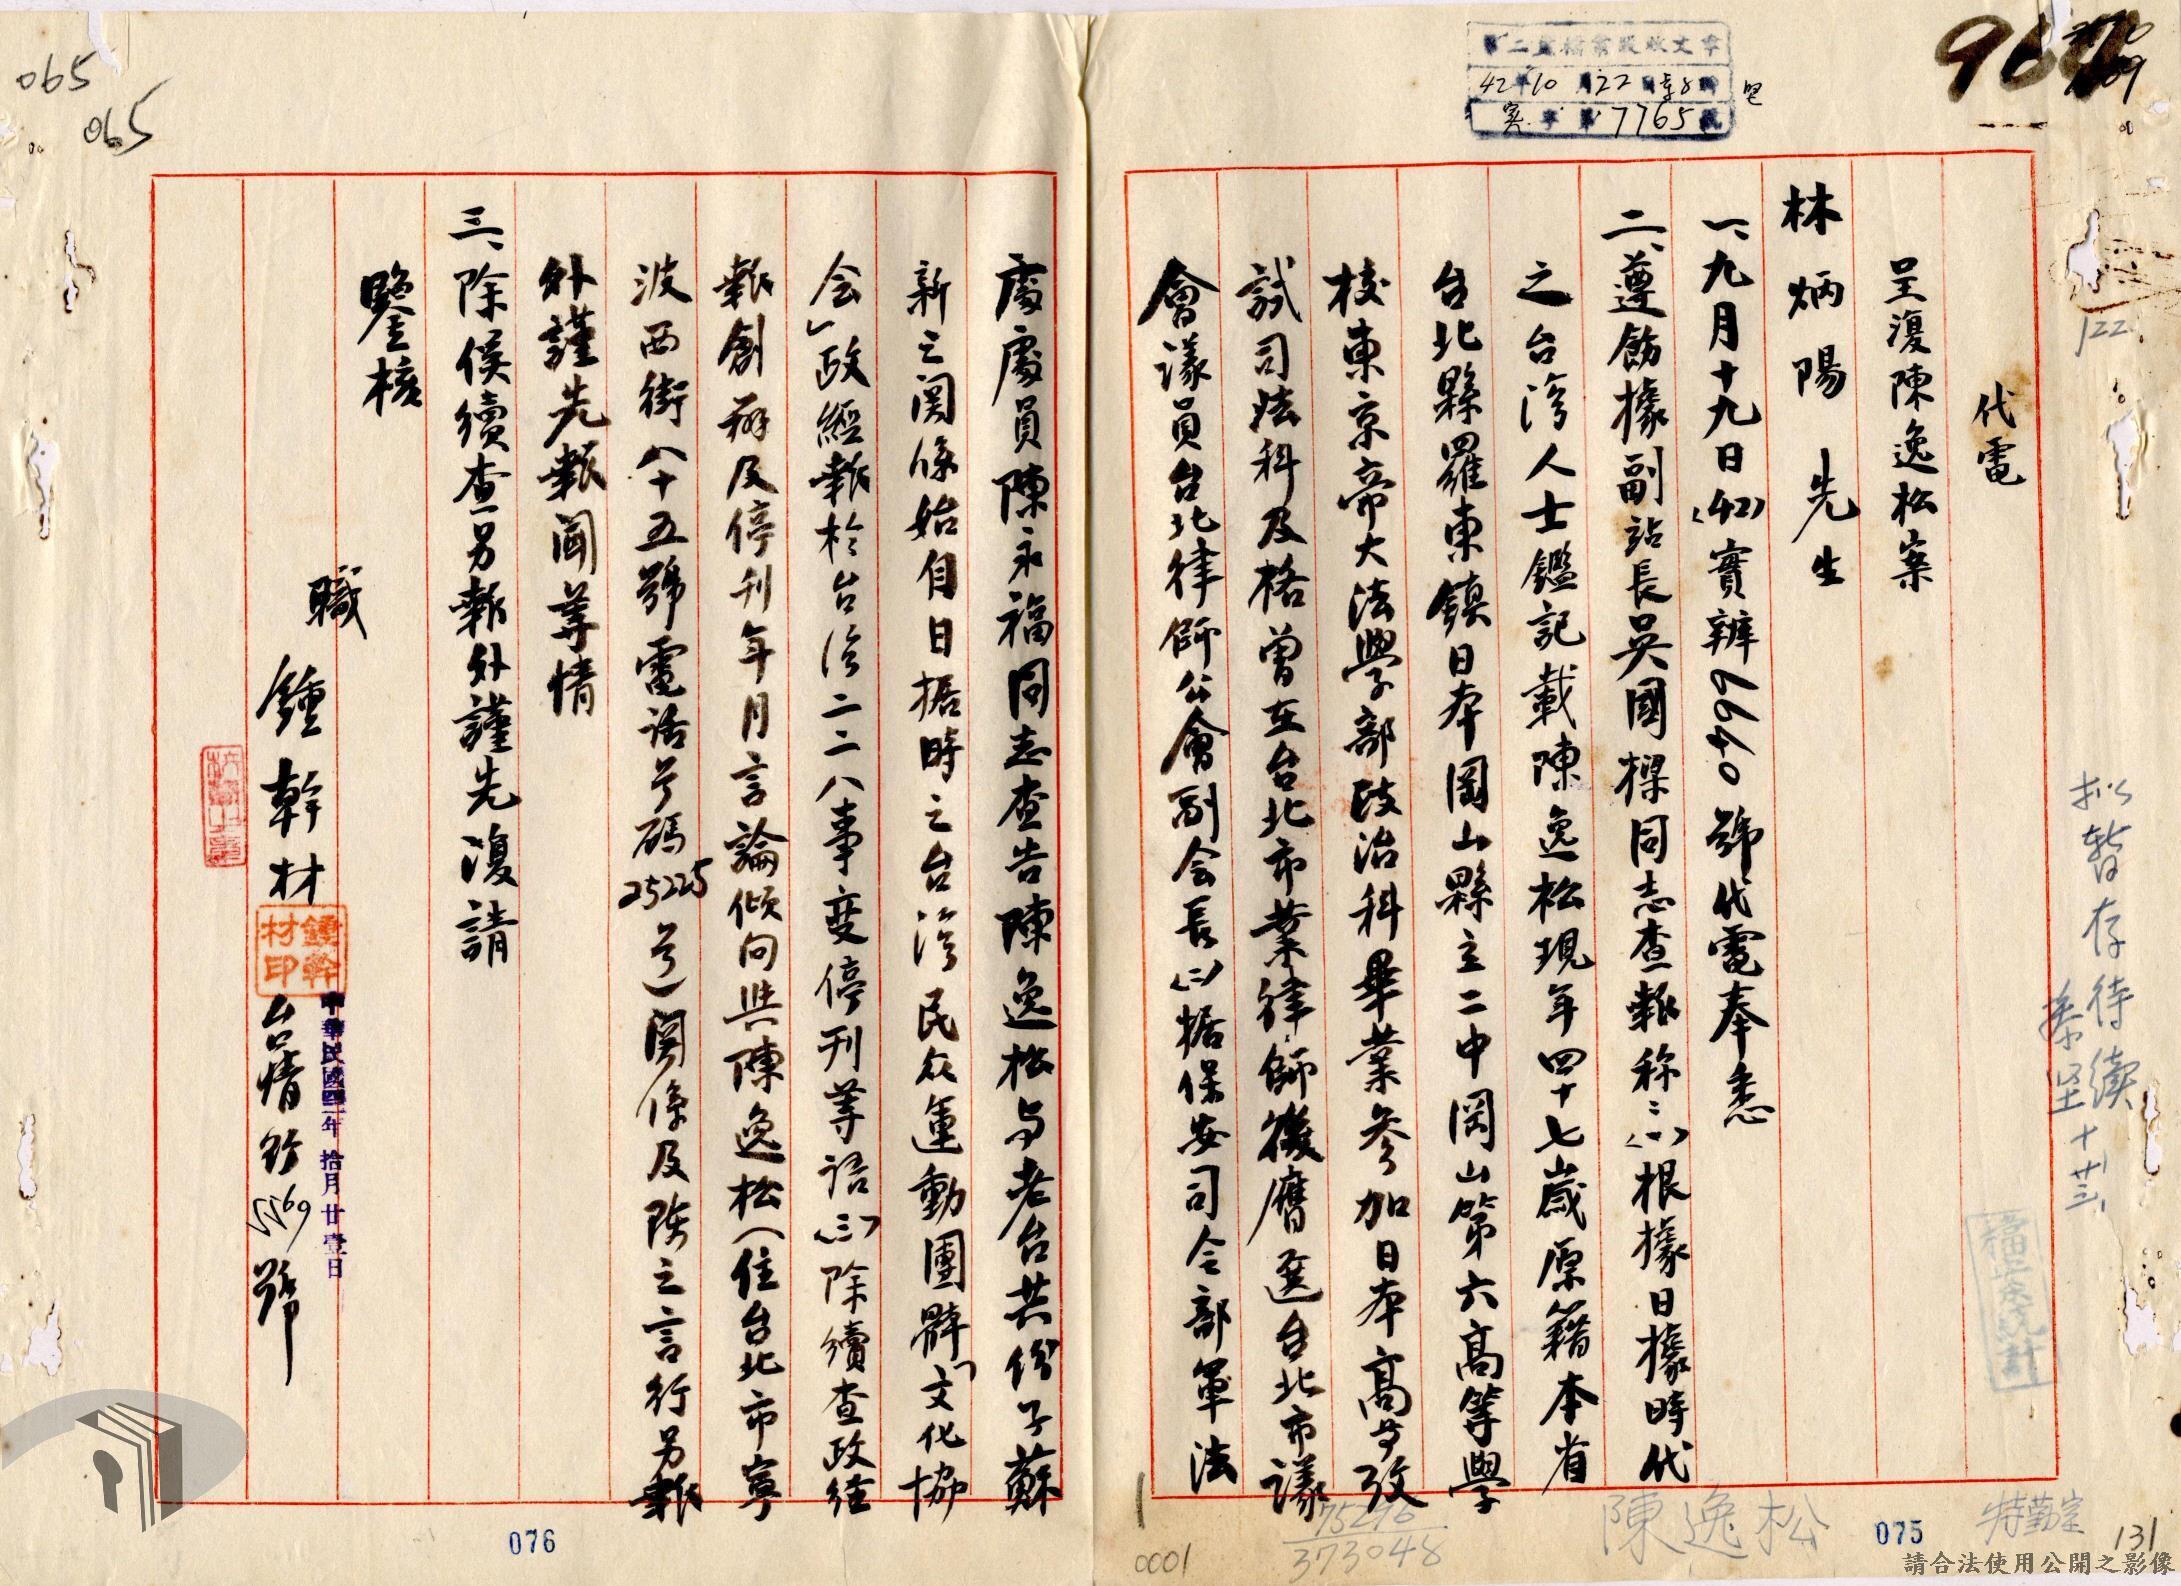 第二處檔案股收文章
42年10月22日 8時
字第7765號
代電
呈復陳逸松案
林炳陽先生
一、九月十九日(42)實辦6640號代電奉悉
二、遵飭據副站長吳國樑同志查報称：(一)根據日據時代
之台湾人士鑑記載陳逸松現年四十七歲原籍本省
台北縣羅東鎮日本岡山縣立二中岡山第六高等學
校東京帝大法學部政治科畢業参加日本高等攷
試司法科及格曾在台北市業律師後膺選台北市議
會議員台北律師公會副会長(二)据保安司令部軍法
處處員陳永福同志查告陳逸松与老台共份子蘇
新之関係始自日据時之台湾民众運動團體「文化協
会」政經報於台湾二二八事变停刊等語(三)除續查政經
報創辦及停刊年月言論倾向與陳逸松(住台北市寧
波西街八十五號電话号碼25225号)関係及陈之言行另報
外謹先報闻等情
三、除俟續查另報外謹先復請
鑒核
職
鍾幹材
鍾幹材印
台情
5569
號
中華民國四二年拾月廿壹日
拟暫存待續
十廿三
陳逸松
特勤室
065
065
122
075
076
131
0001
75276
373048
請合法使用公開之影像